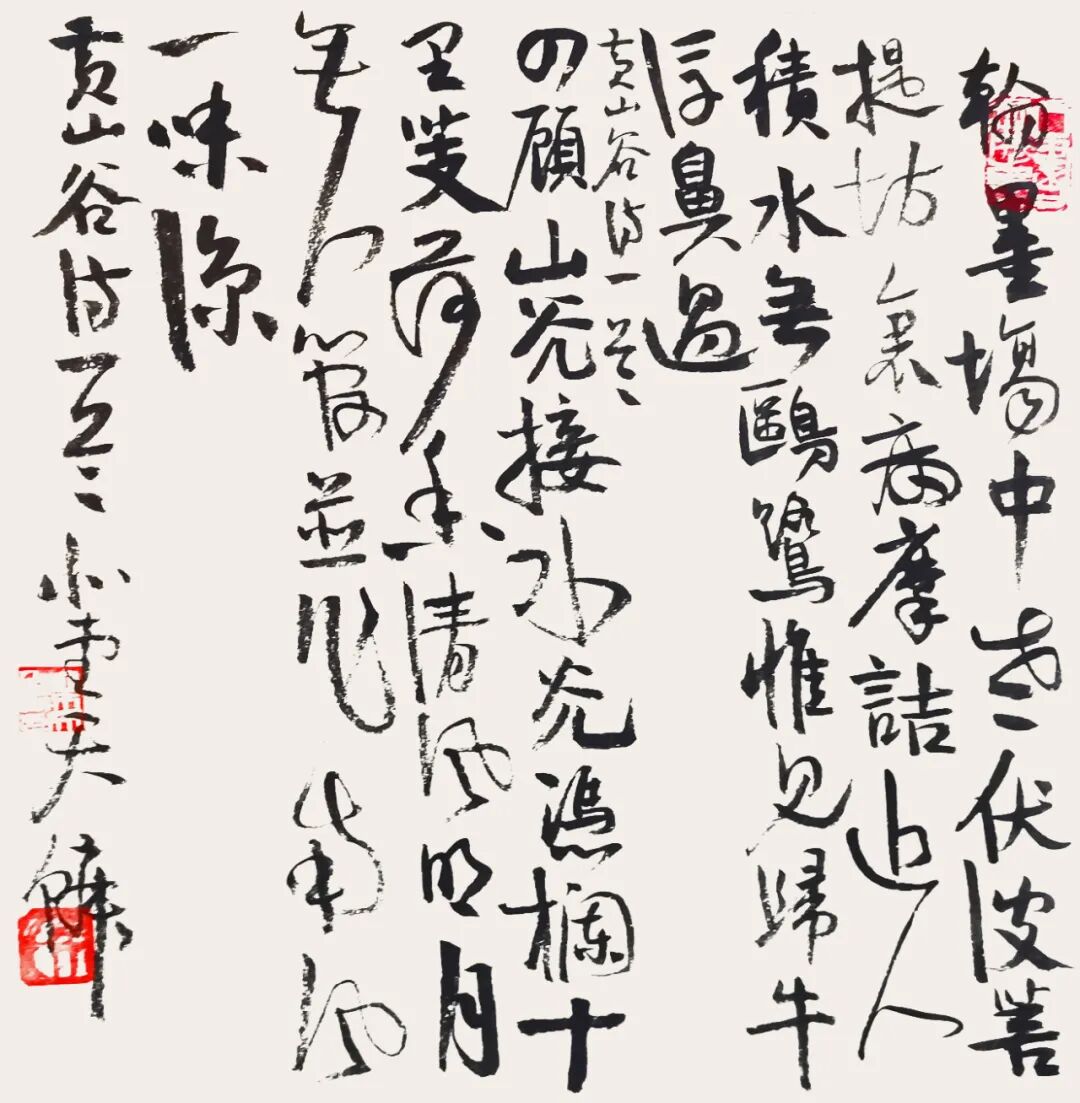 翰墨場中老伏波菩
提坊裏病摩詰近人
積水無鷗鷺惟見歸牛
浮鼻過
黄山谷诗一首
四顧山光接水光憑欄十
里芰荷香清風明月
無人管並作南風
一味涼
黄山谷诗一首